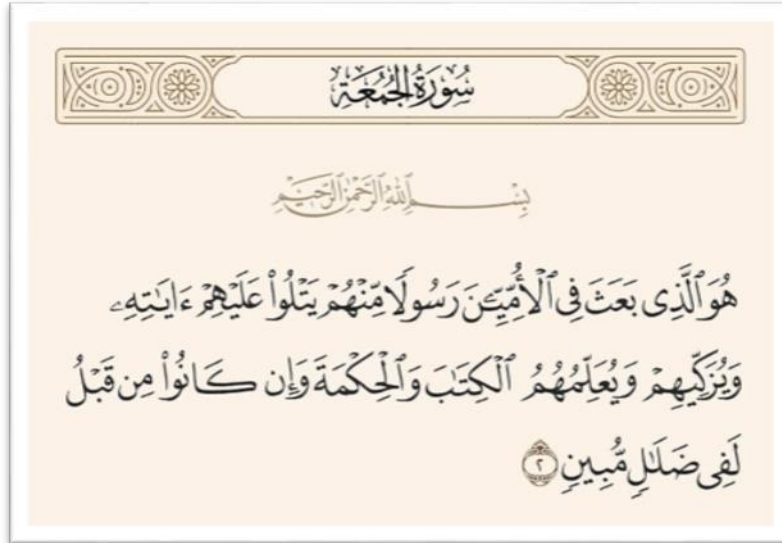 سُورَةُ الجُمُعَةِ
بِسْمِ ٱللَّهِ ٱلرَّحْمَٰنِ ٱلرَّحِيمِ
هُوَ ٱلَّذِى بَعَثَ فِى ٱلْأُمِّيِّـۧنَ رَسُولًا مِّنْهُمْ يَتْلُوا۟ عَلَيْهِمْ ءَايَٰتِهِۦ
وَيُزَكِّيهِمْ وَيُعَلِّمُهُمُ ٱلْكِتَٰبَ وَٱلْحِكْمَةَ وَإِن كَانُوا۟ مِن قَبْلُ
لَفِى ضَلَٰلٍ مُّبِينٍ ٢